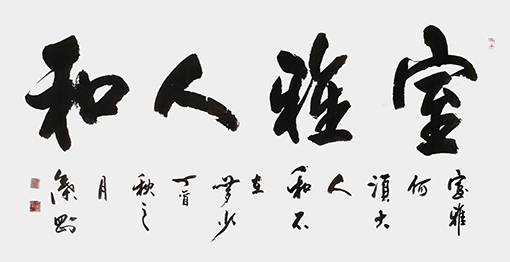 室雅人和
室雅
何
须大
人
和不
在
多少
丁酉
秋之
月